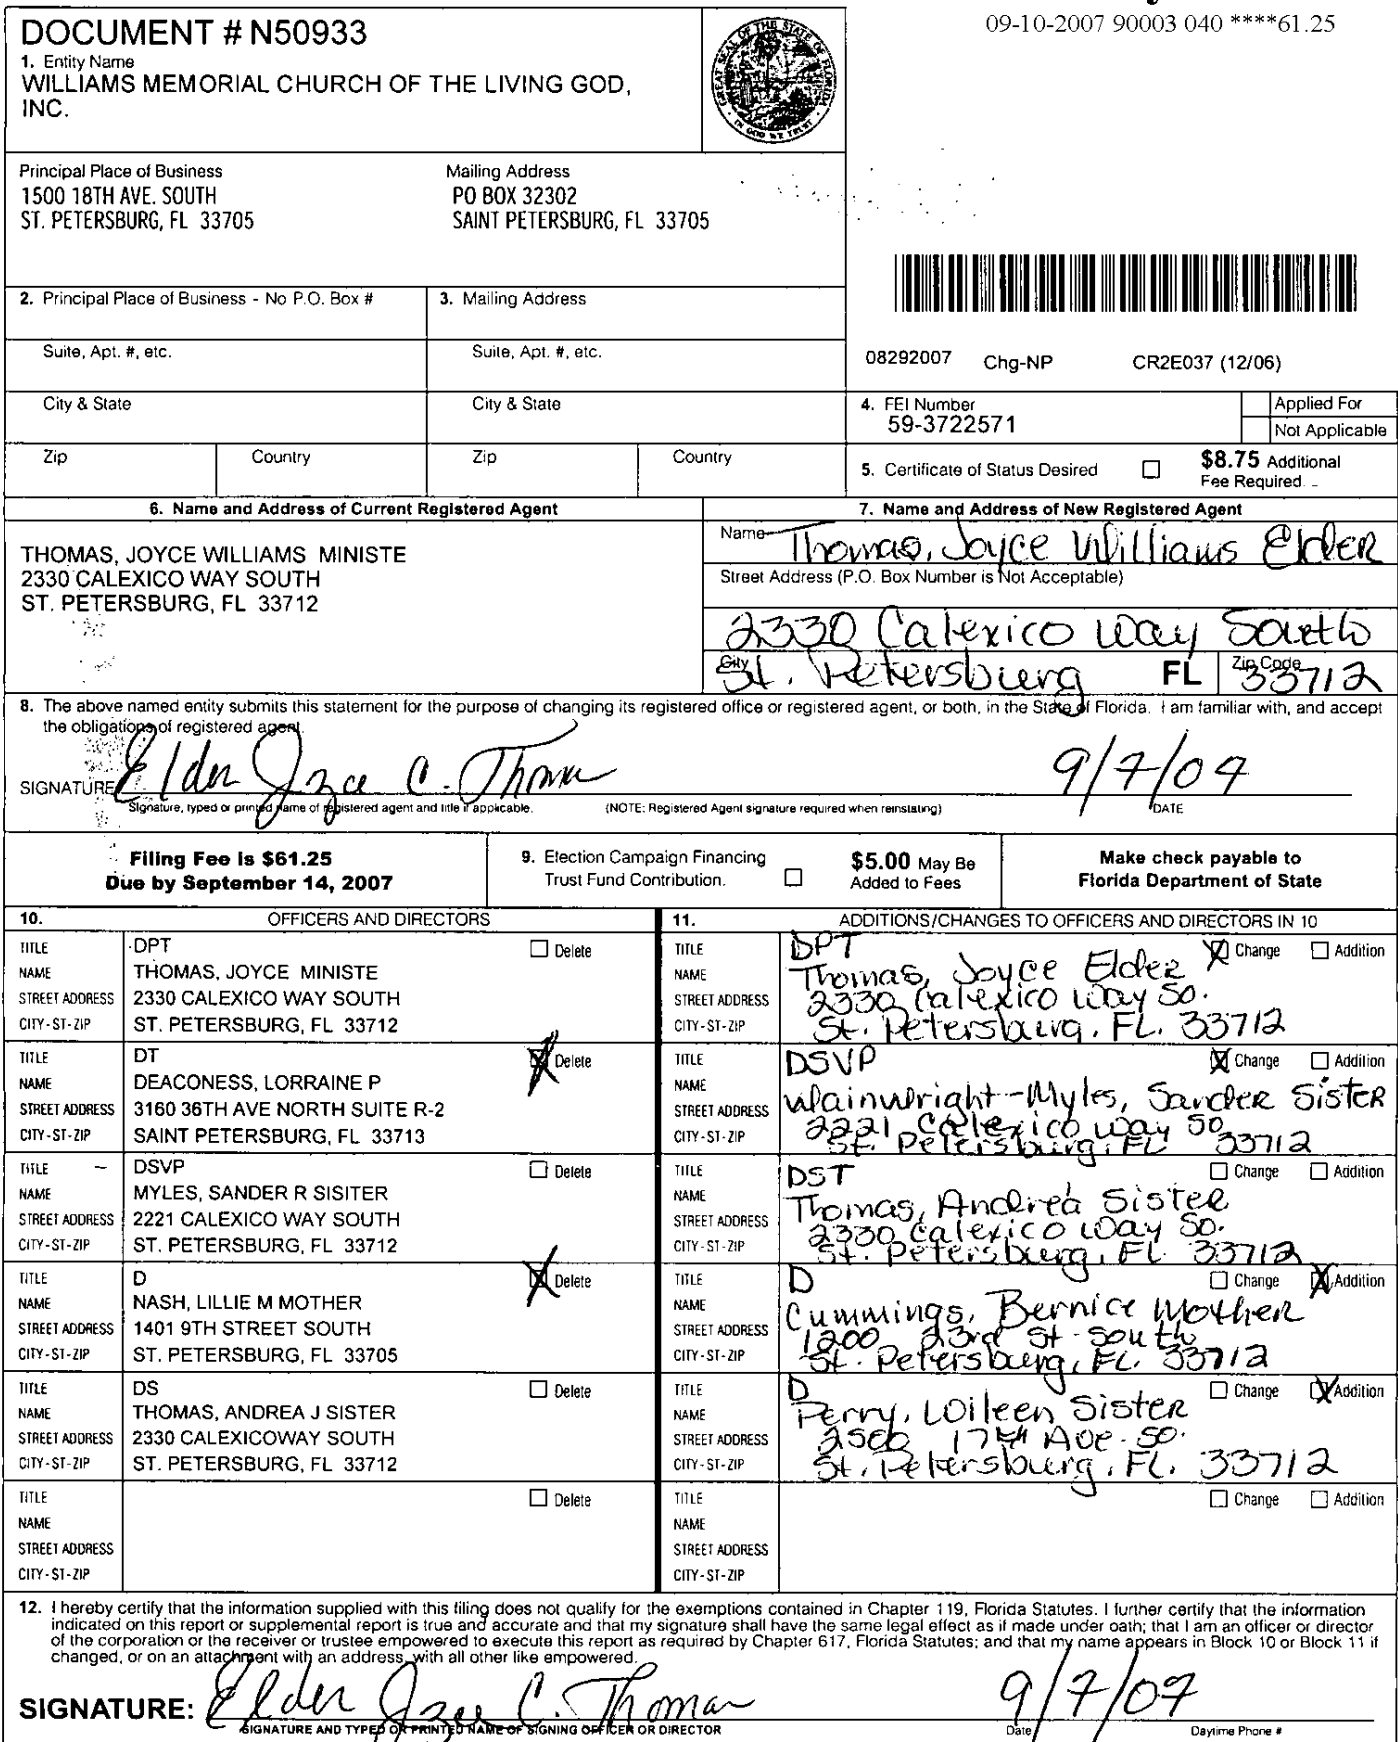 09-10-2007 90003 040 ****61.25
DOCUMENT # N50933
1. Entity Name
WILLIAMS MEMORIAL CHURCH OF THE LIVING GOD,
INC.
GREAT SEAL OF THE STATE OF FLORIDA
IN GOD WE TRUST
Principal Place of Business
1500 18TH AVE. SOUTH
ST. PETERSBURG, FL 33705
Mailing Address
PO BOX 32302
SAINT PETERSBURG, FL 33705
2. Principal Place of Business - No P.O. Box #
3. Mailing Address
Suite, Apt. #, etc.
Suite, Apt. #, etc.
08292007 Chg-NP CR2E037 (12/06)
City & State
City & State
4. FEI Number
59-3722571
Applied For
Not Applicable
Zip Country
Zip Country
5. Certificate of Status Desired
$8.75 Additional
Fee Required
6. Name and Address of Current Registered Agent
THOMAS, JOYCE WILLIAMS MINISTE
2330 CALEXICO WAY SOUTH
ST. PETERSBURG, FL 33712
7. Name and Address of New Registered Agent
Name Thomas, Joyce Williams Elder
Street Address (P.O. Box Number is Not Acceptable)
2330 Calexico Way South
City St. Petersburg FL Zip Code 33712
8. The above named entity submits this statement for the purpose of changing its registered office or registered agent, or both, in the State of Florida. I am familiar with, and accept
the obligations of registered agent.
SIGNATURE Elder Joyce C. Thomas 9/7/07
Signature, typed or printed name of registered agent and title if applicable. (NOTE: Registered Agent signature required when reinstating) DATE
Filing Fee is $61.25
Due by September 14, 2007
9. Election Campaign Financing
Trust Fund Contribution.
$5.00 May Be
Added to Fees
Make check payable to
Florida Department of State
10. OFFICERS AND DIRECTORS
TITLE DPT Delete
NAME THOMAS, JOYCE MINISTE
STREET ADDRESS 2330 CALEXICO WAY SOUTH
CITY-ST-ZIP ST. PETERSBURG, FL 33712
TITLE DT Delete
NAME DEACONESS, LORRAINE P
STREET ADDRESS 3160 36TH AVE NORTH SUITE R-2
CITY-ST-ZIP SAINT PETERSBURG, FL 33713
TITLE DSVP Delete
NAME MYLES, SANDER R SISITER
STREET ADDRESS 2221 CALEXICO WAY SOUTH
CITY-ST-ZIP ST. PETERSBURG, FL 33712
TITLE D Delete
NAME NASH, LILLIE M MOTHER
STREET ADDRESS 1401 9TH STREET SOUTH
CITY-ST-ZIP ST. PETERSBURG, FL 33705
TITLE DS Delete
NAME THOMAS, ANDREA J SISTER
STREET ADDRESS 2330 CALEXICOWAY SOUTH
CITY-ST-ZIP ST. PETERSBURG, FL 33712
TITLE Delete
NAME
STREET ADDRESS
CITY-ST-ZIP
11. ADDITIONS/CHANGES TO OFFICERS AND DIRECTORS IN 10
TITLE DPT X Change Addition
NAME Thomas, Joyce Elder
STREET ADDRESS 2330 Calexico Way So.
CITY-ST-ZIP St. Petersburg, FL. 33712
TITLE DSVP X Change Addition
NAME Wainwright-Myles, Sander Sister
STREET ADDRESS 2221 Calexico Way So
CITY-ST-ZIP St. Petersburg, FL 33712
TITLE DST Change Addition
NAME Thomas, Andrea Sister
STREET ADDRESS 2330 Calexico Way So.
CITY-ST-ZIP St. Petersburg, FL 33712
TITLE D Change X Addition
NAME Cummings, Bernice Mother
STREET ADDRESS 1200 23rd St South
CITY-ST-ZIP St. Petersburg, FL. 33712
TITLE D Change X Addition
NAME Perry, Sister
STREET ADDRESS 17th Ave. So.
CITY-ST-ZIP St. Petersburg, FL. 33712
TITLE Change Addition
NAME
STREET ADDRESS
CITY-ST-ZIP
12. I hereby certify that the information supplied with this filing does not qualify for the exemptions contained in Chapter 119, Florida Statutes. I further certify that the information
indicated on this report or supplemental report is true and accurate and that my signature shall have the same legal effect as if made under oath; that I am an officer or director
of the corporation or the receiver or trustee empowered to execute this report as required by Chapter 617, Florida Statutes; and that my name appears in Block 10 or Block 11 if
changed, or on an attachment with an address, with all other like empowered.
SIGNATURE: Elder Joyce C. Thomas 9/7/07
SIGNATURE AND TYPED OR PRINTED NAME OF SIGNING OFFICER OR DIRECTOR Date Daytime Phone #